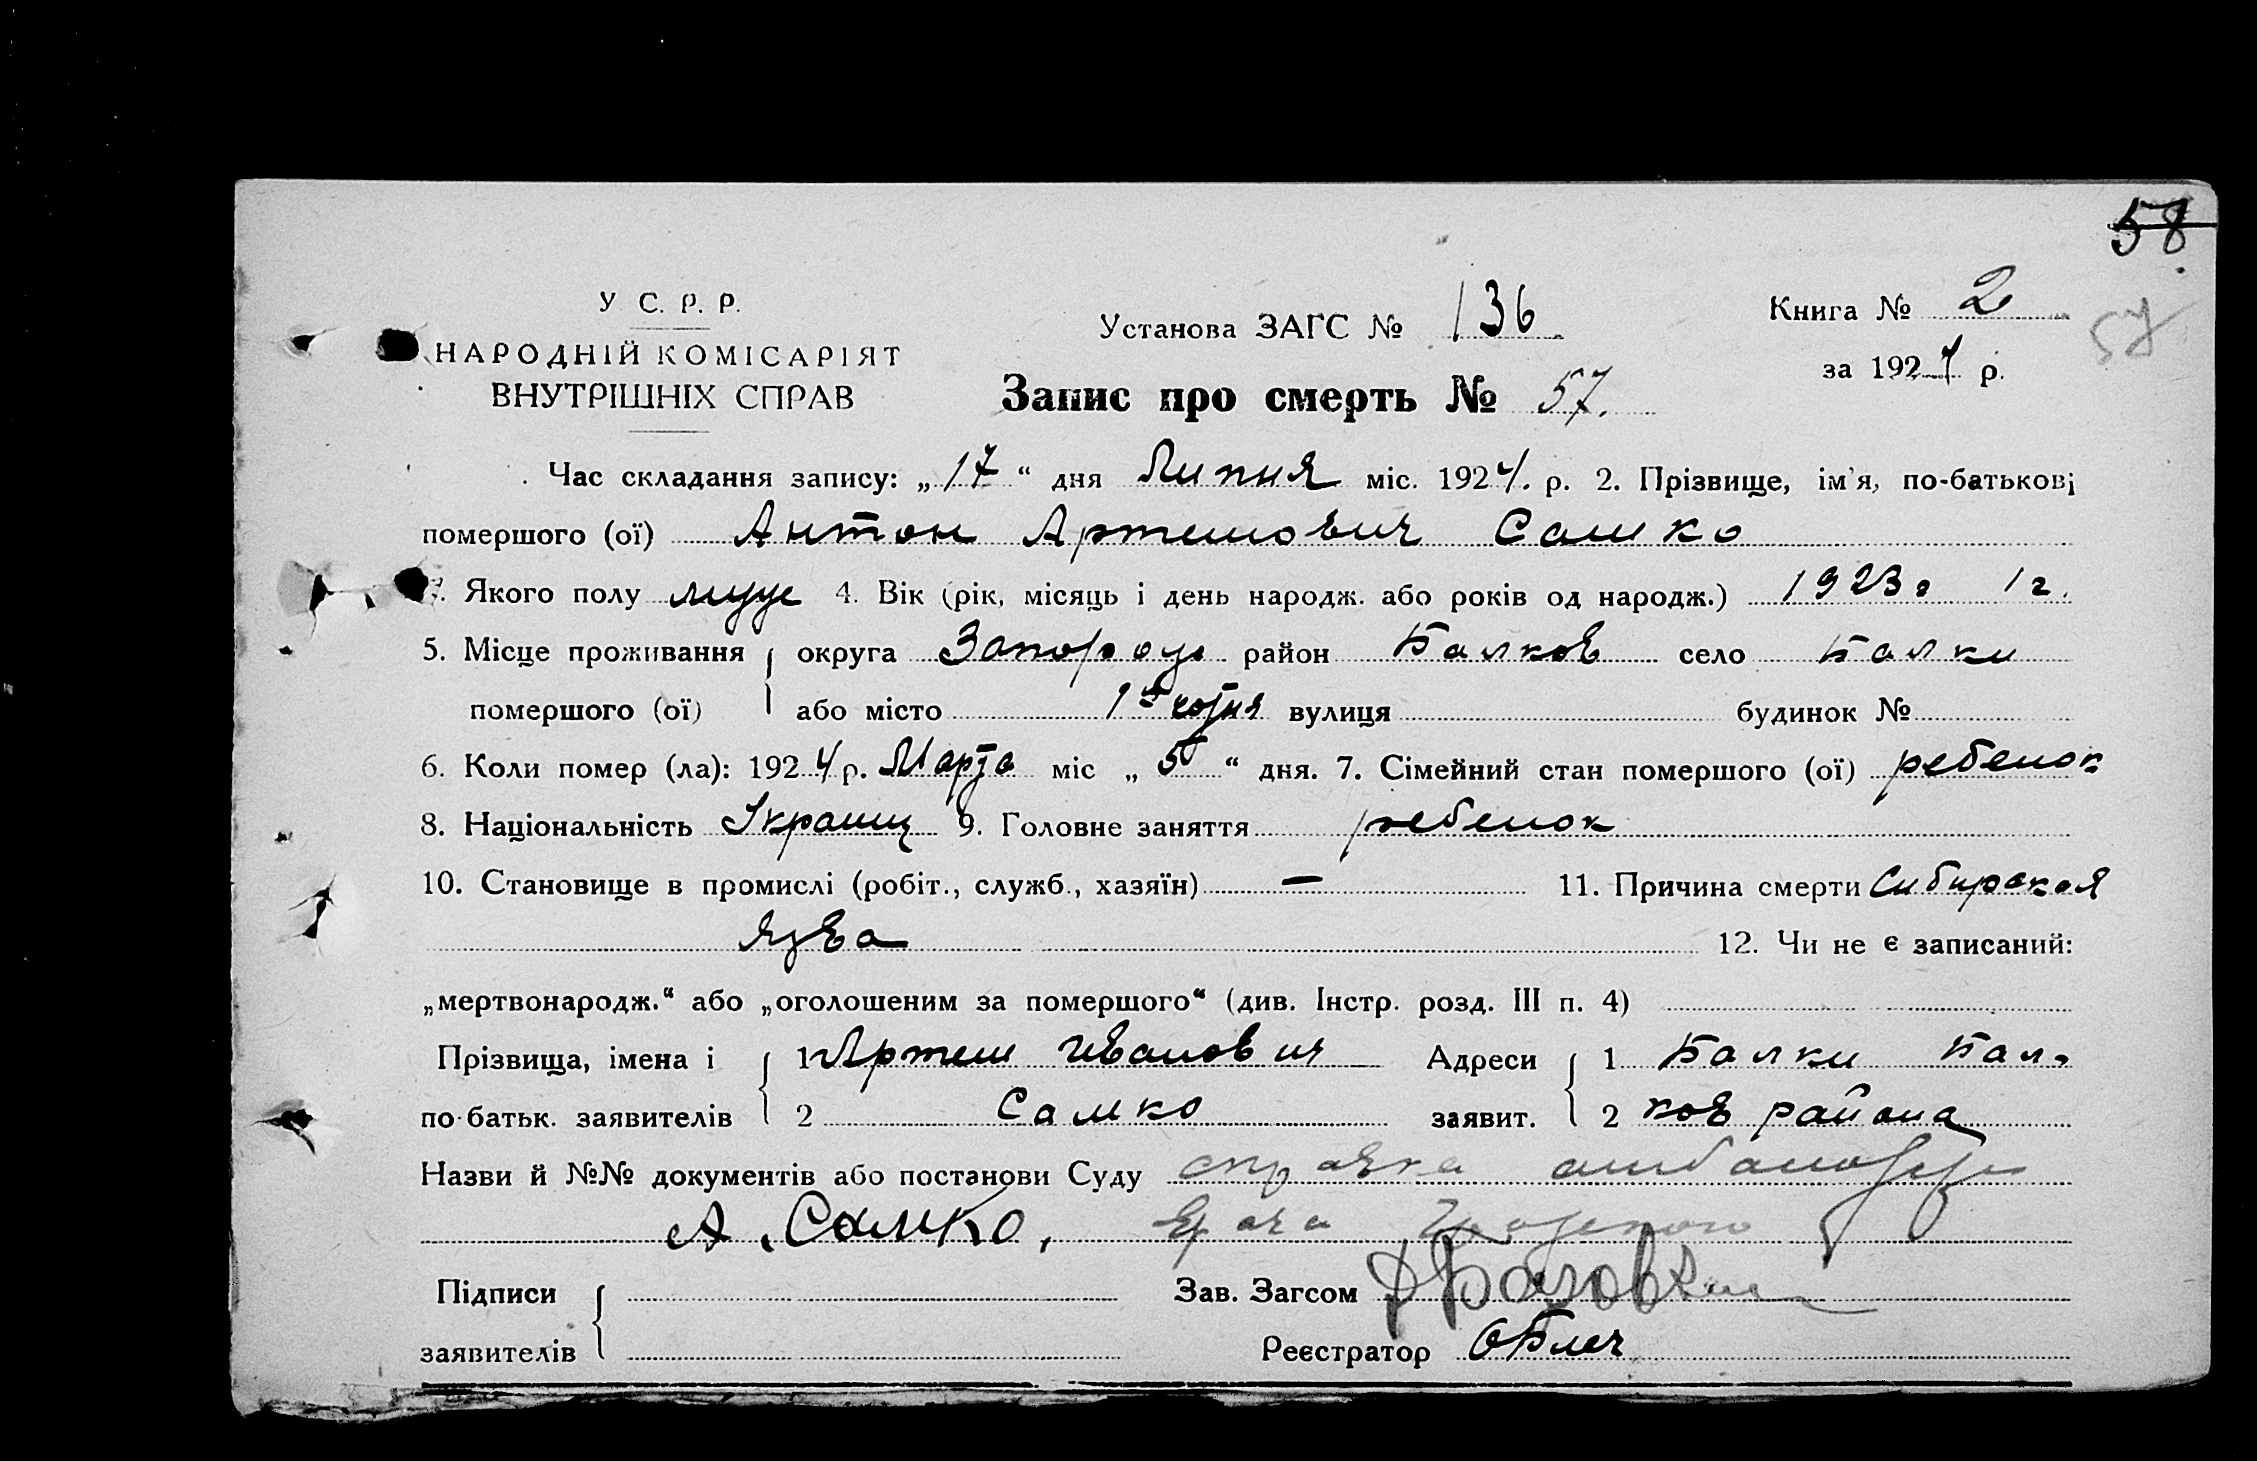 58
У С. Р. Р.
НАРОДНІЙ КОМІСАРІЯТ
ВНУТРІШНІХ СПРАВ
Установа ЗАГС № 136
Книга № 2
57
за 1924 р.
Запис про смерть № 57.
Час складання запису: „17“ дня Липня міс. 1924. р. 2. Прізвище, ім'я, по-батькові
помершого (ої) Антон Артемович Самко
3. Якого полу муж 4. Вік (рік, місяць і день народж. або років од народж.) 1923 г 1 г.
5. Місце проживання округа Запорож район Балков село Балки
помершого (ої) або місто 1й вулиця будинок №
6. Коли помер (ла): 1924 р. Марта міс „5“ дня. 7. Сімейний стан помершого (ої) ребенок
8. Національність Украинц 9. Головне заняття ребенок
10. Становище в промислі (робіт., служб., хазяїн) — 11. Причина смерти Сибирская
язва 12. Чи не є записаний:
„мертвонародж.“ або „оголошеним за помершого“ (див. Інстр. розд. III п. 4)
Прізвища, імена і 1 Артем Иванович Адреси 1 Балки Бал-
по-батьк. заявителів 2 Самко заявит. 2 ков района
Назви й №№ документів або постанови Суду справка
А. Самко, врача
Підписи Зав. Загсом
заявителів Реєстратор